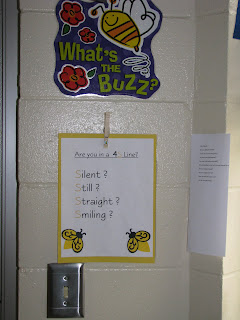 What's
THE
BUZZ?
Are you in a 4S Line?
Silent ?
Still ?
Straight ?
Smiling ?